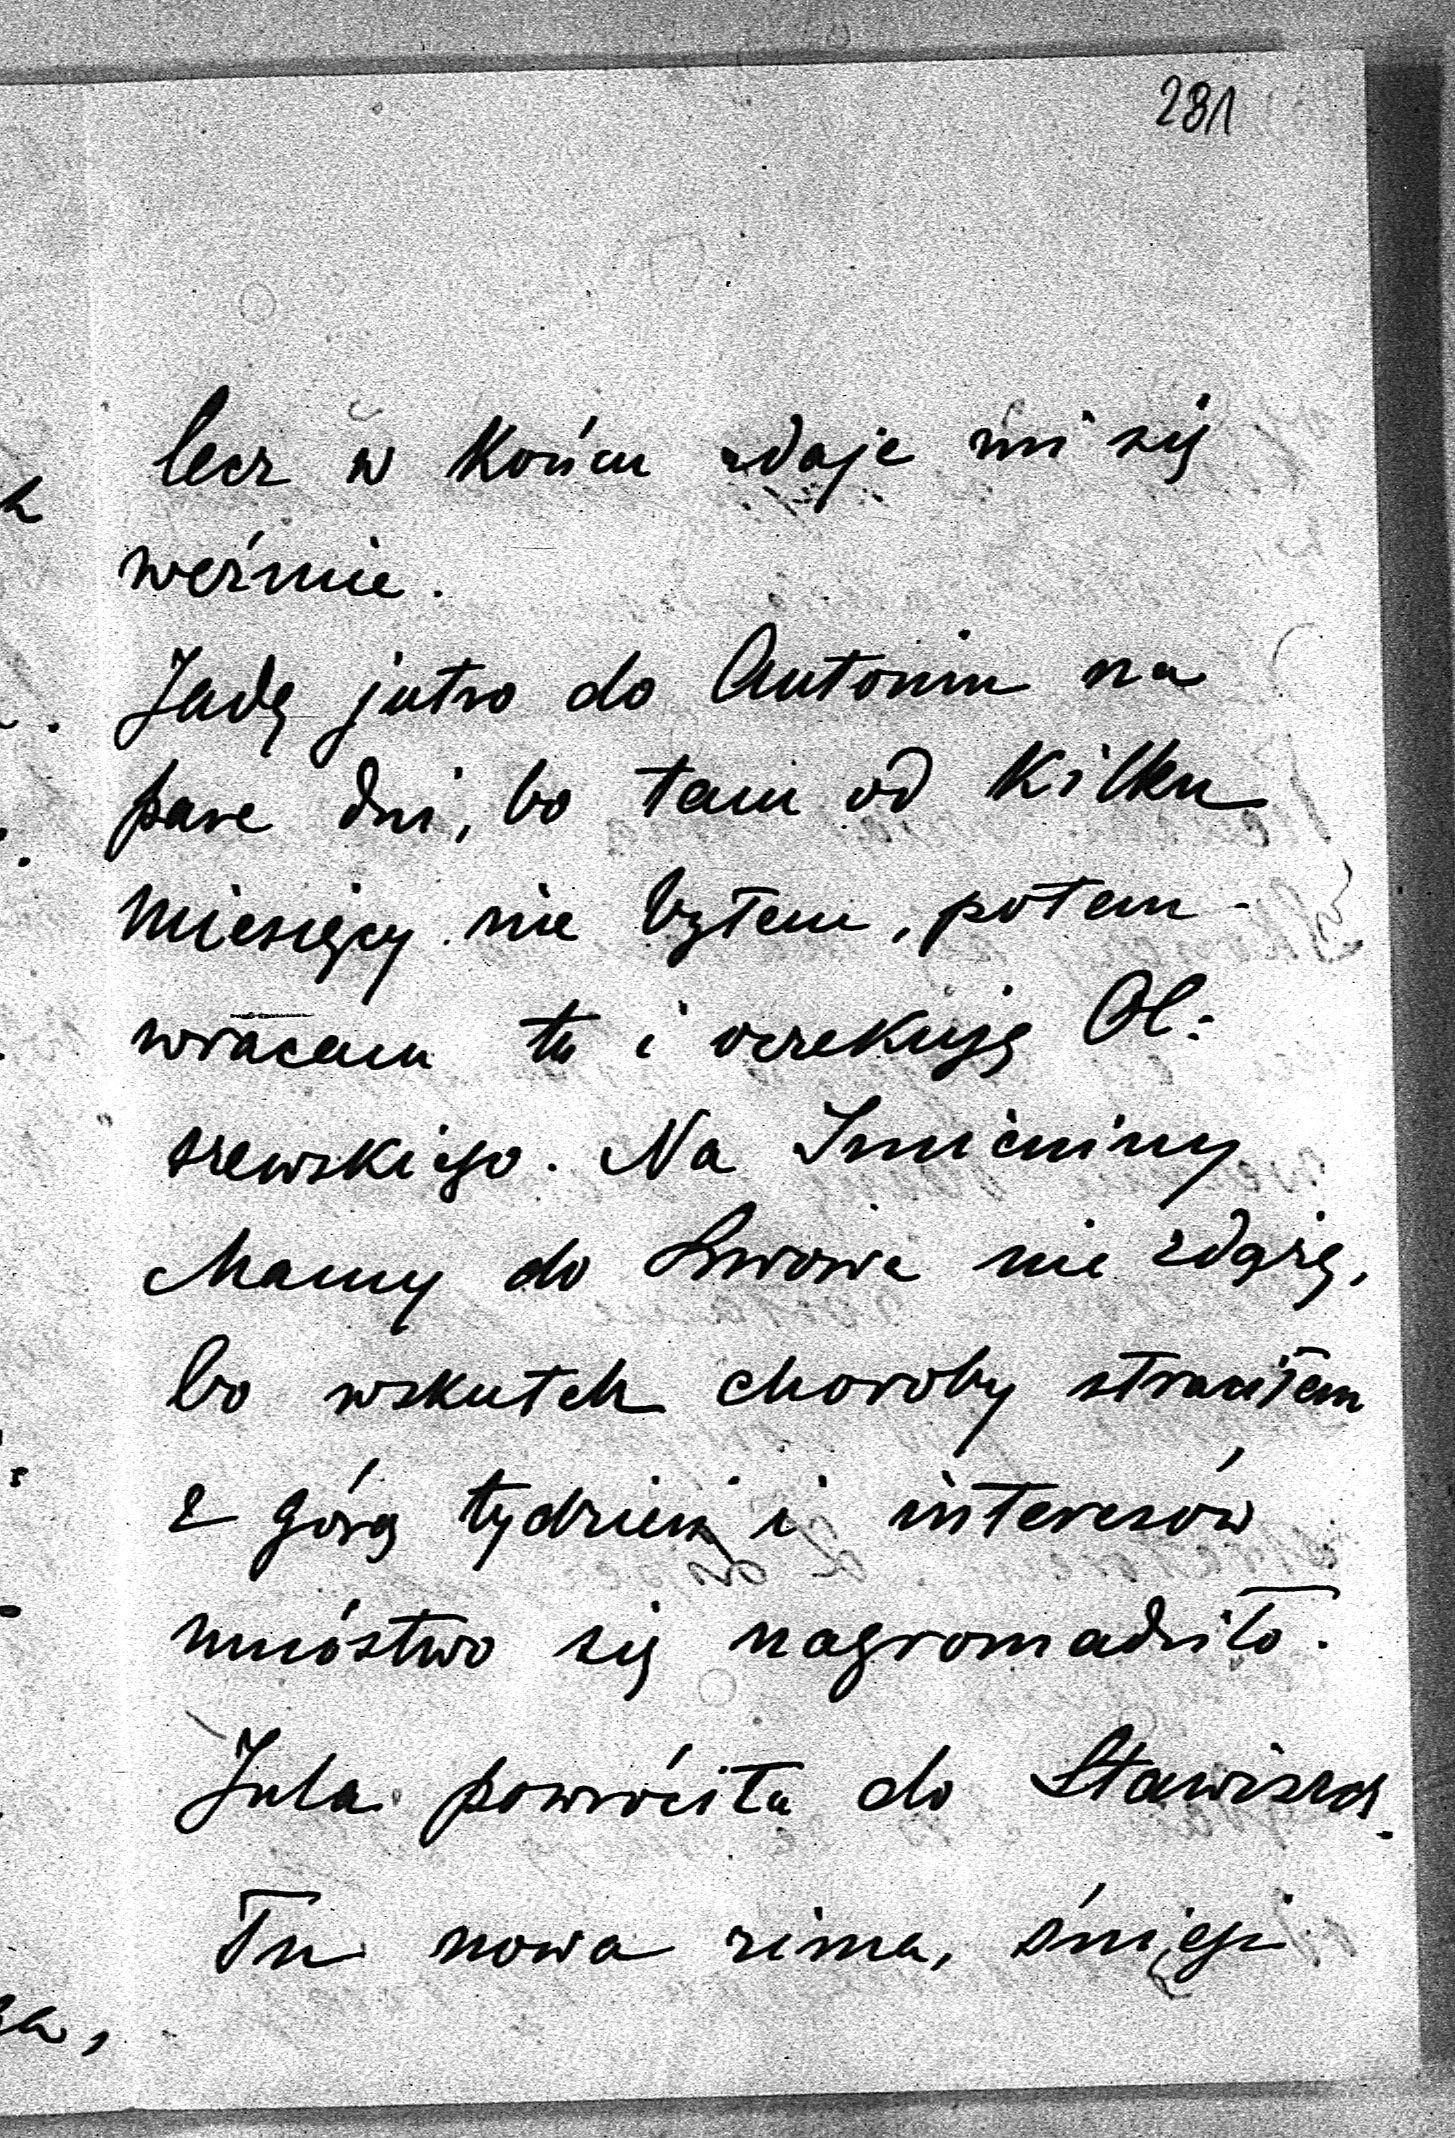 281
lecz w końcu zdaje mi się
weźmie.
Jadę jutro do Antonin na
pare dni, bo tam od kilku
miesięcy nie byłem, potem
wracam tu i oczekuję Ol:
szewskiego. Na Imieniny
Mamy do Lwowa nie zdążę,
bo wskutek choroby straciłem
z górą tydzień i interesów
mnóstwo się nagromadziło.
Jula powróciła do Stawiszcz.
Tu nowa zima, śniegi